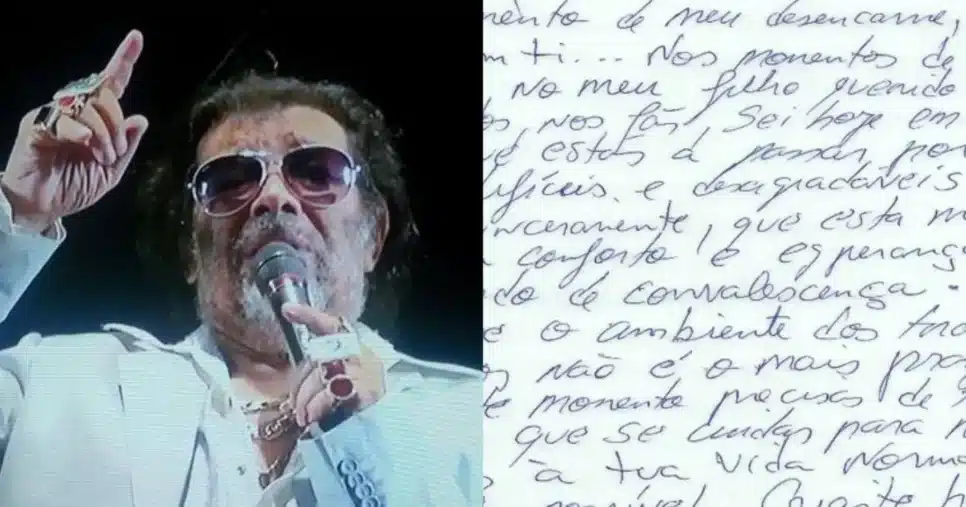 mento de meu desencarne,
m ti... Nos momentos de
No meu filho querido
os, nos fãs, Sei hoje em
ue estás a passar por
difíceis e desagradáveis
inceramente, que esta m
conforto e esperanç
do de convalescença.
e o ambiente dos
não é o mais pro
momento precisas de
que se cuidas para
à tua vida norma
possível.